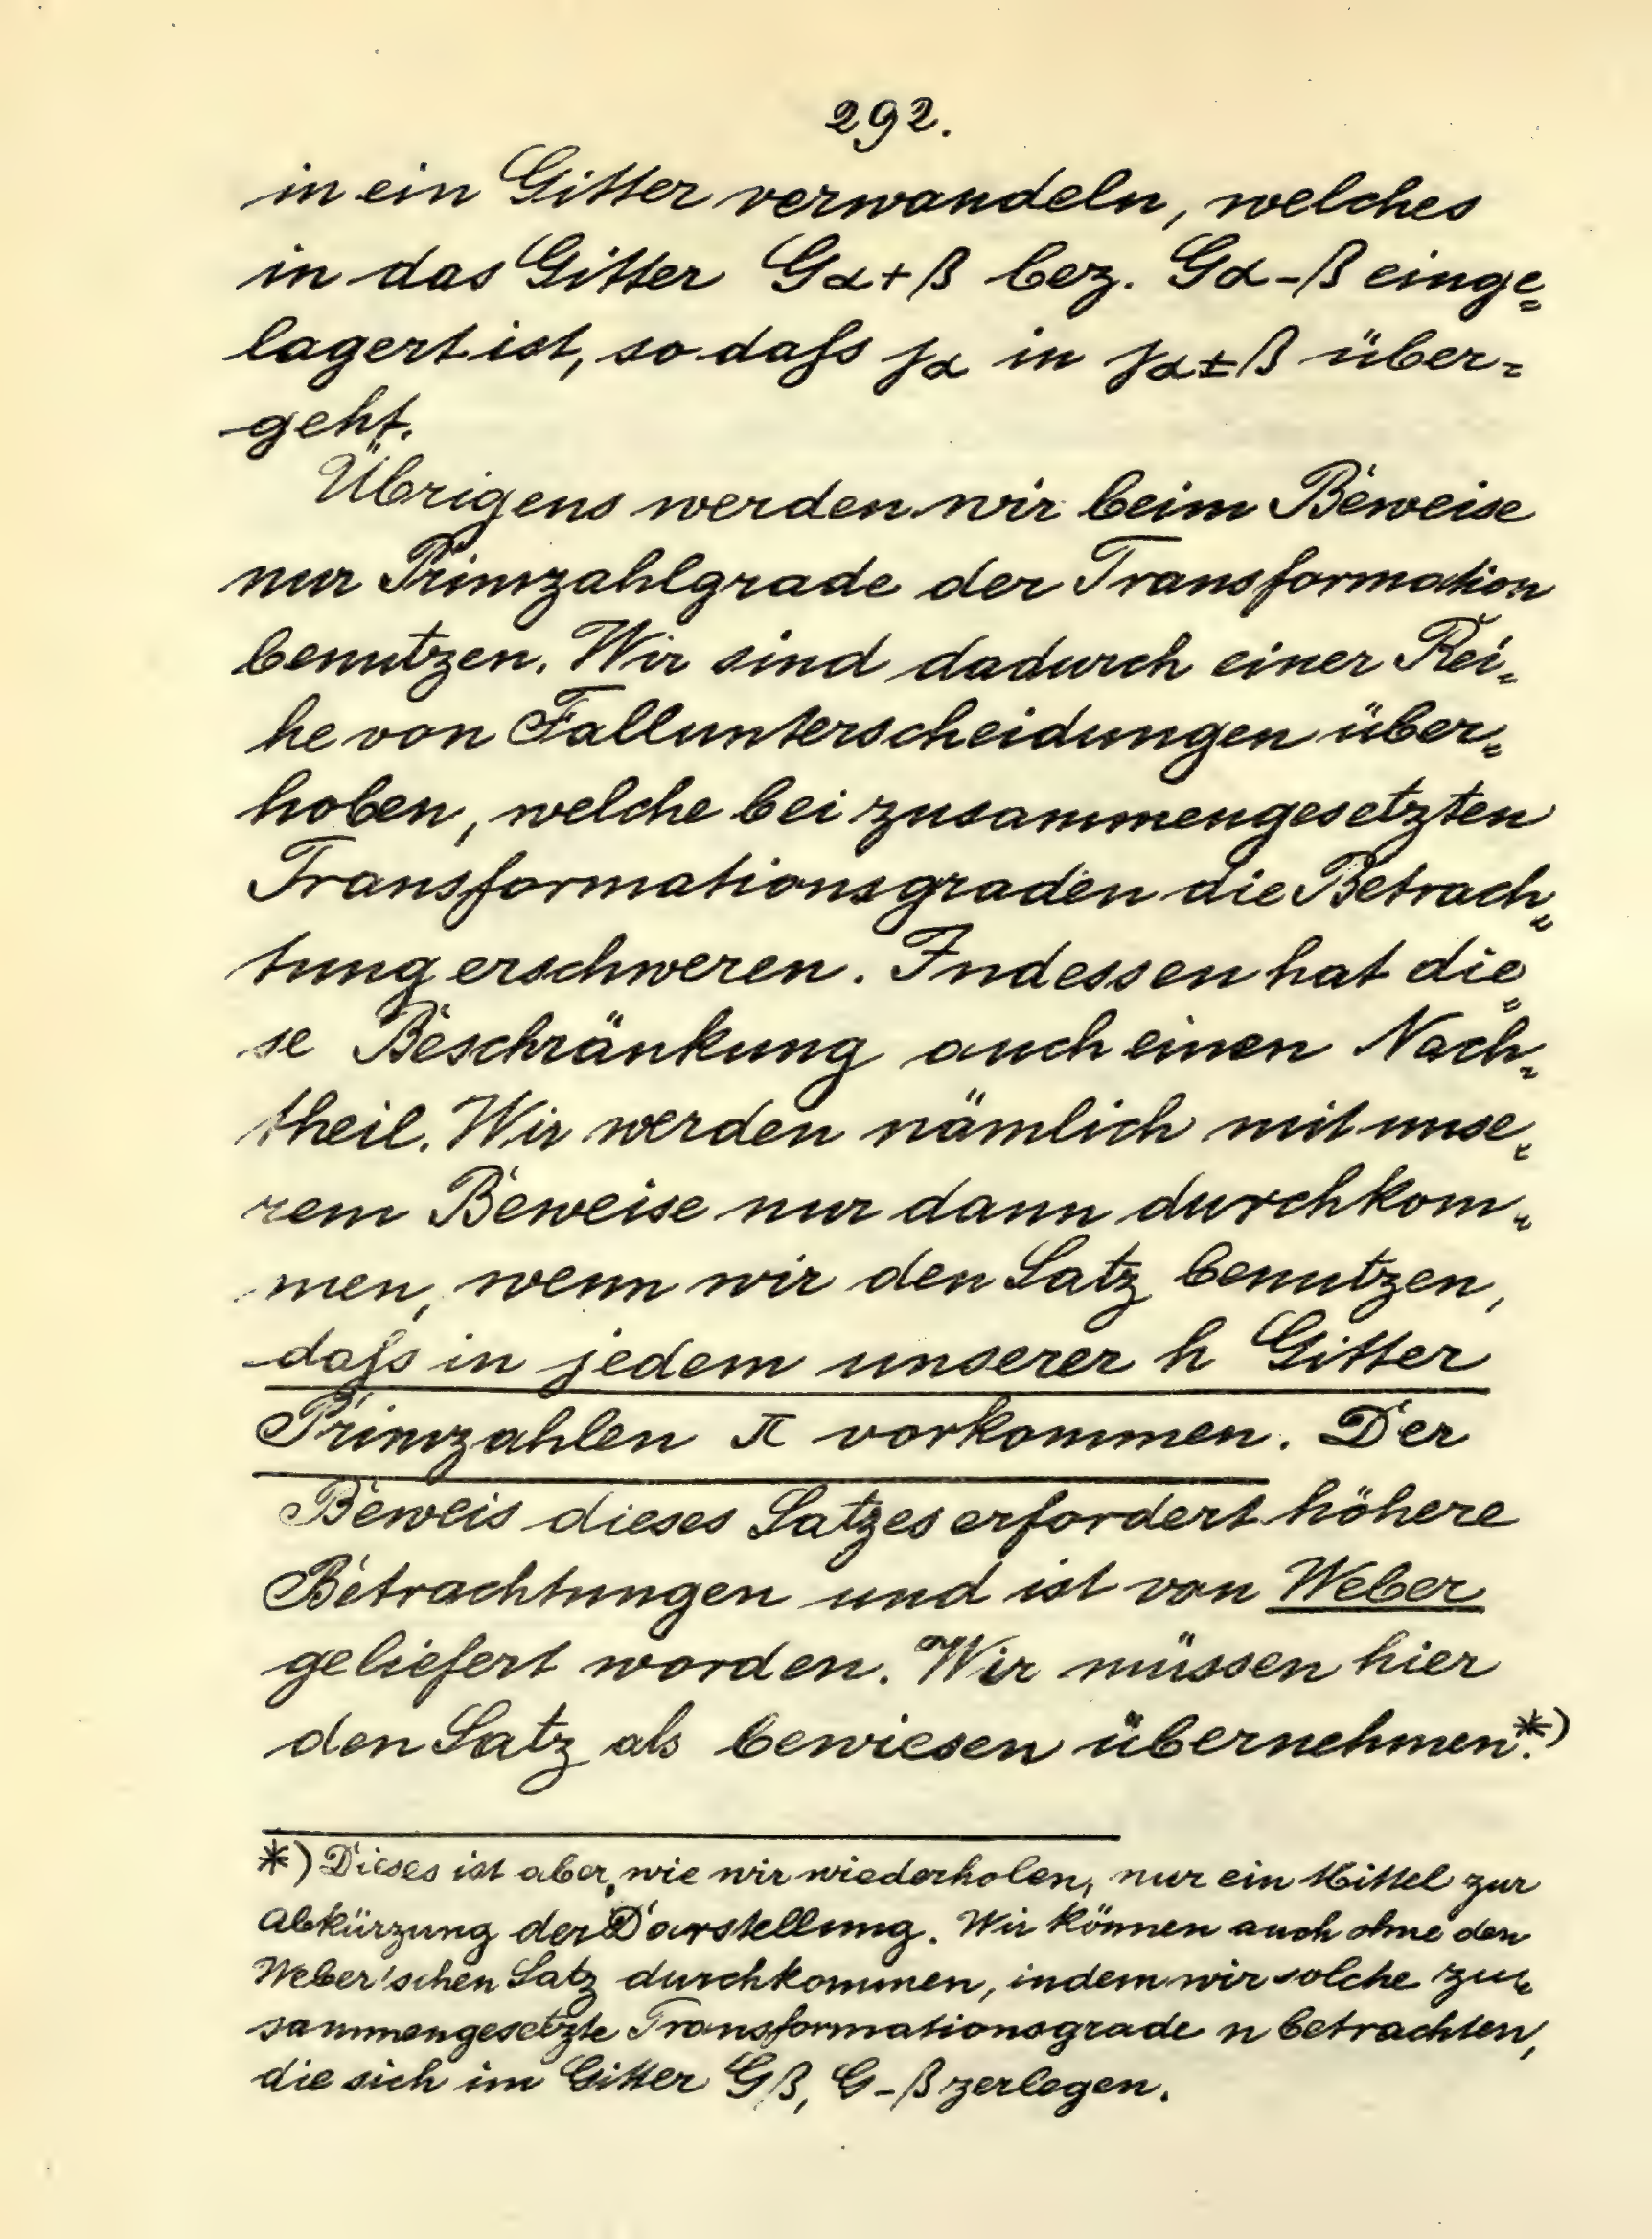 292.
in ein Gitter verwandeln, welches
in das Gitter Gα+β bez. Gα-β einge=
lagert ist, so daſs jα in jα±β über=
geht.
Übrigens werden wir beim Beweise
nur Primzahlgrade der Transformation
benutzen. Wir sind dadurch einer Rei=
he von Fallunterscheidungen über=
hoben, welche bei zusammengesetzten
Transformationsgraden die Betrach=
tung erschweren. Indessen hat die=
se Beschränkung auch einen Nach=
theil. Wir werden nämlich mit unse=
rem Beweise nur dann durchkom=
men, wenn wir den Satz benutzen,
daſs in jedem unserer h Gitter
Primzahlen π vorkommen. Der
Beweis dieses Satzes erfordert höhere
Betrachtungen und ist von Weber
geliefert worden. Wir müssen hier
den Satz als bewiesen übernehmen.*)
*) Dieses ist aber, wie wir wiederholen, nur ein Mittel zur
Abkürzung der Darstellung. Wir können auch ohne den
Weber'schen Satz durchkommen, indem wir solche zu=
sammengesetzte Transformationsgrade n betrachten,
die sich im Gitter Gβ, G-β zerlegen.